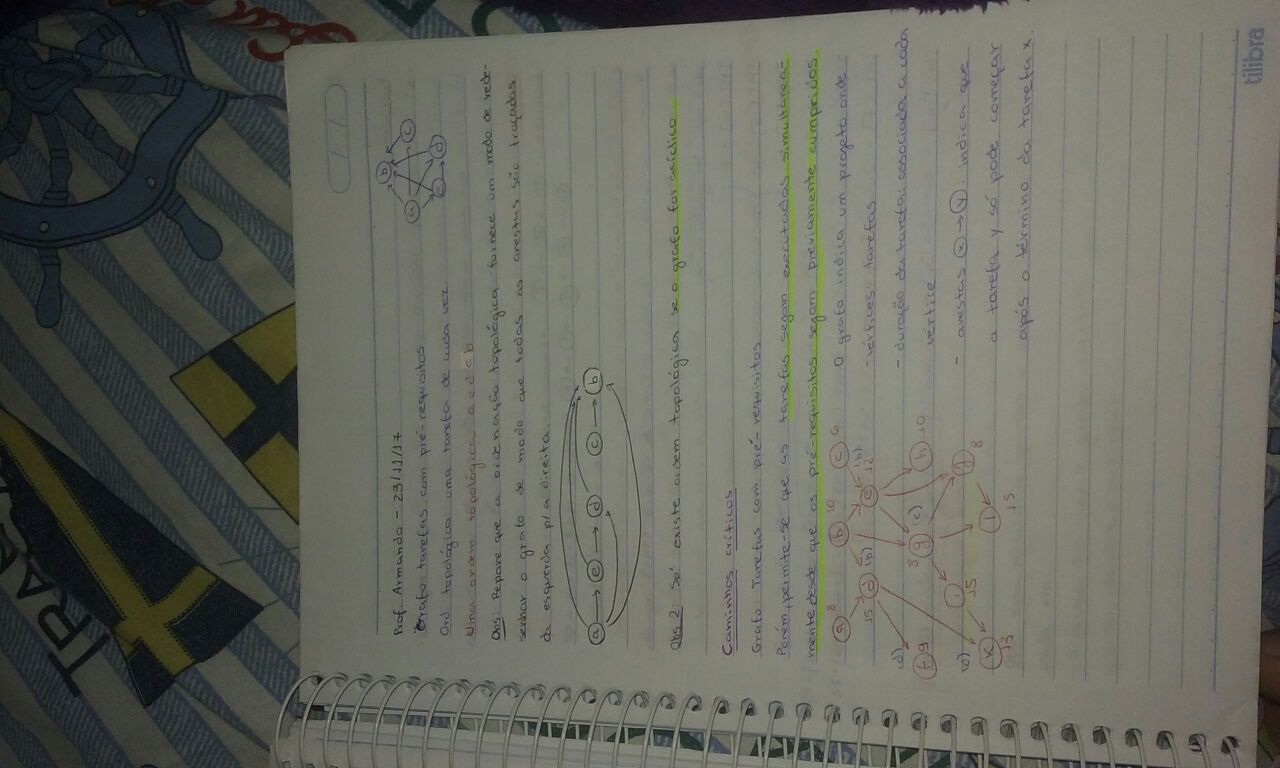 TRAS
Prof. Armando - 23/11/17
Grafo: tarefas com pré-requisitos
Ord topológica uma tarefa de cada vez
Uma ordem topológica a e d c b
b
a c
e d
Obs: Repare que a ordenação topológica fornece um modo de rede-
senhar o grafo de modo que todas as arestas são traçadas
da esquerda p/ a direita.
a e d c b
Obs 2: Só existe ordem topológica se o grafo for acíclico
Caminhos críticos
Grafo: Tarefas com pré-requisitos
Porém, permite-se que as tarefas segam executadas simultanea-
mente desde que os pré-requisitos segam previamente cumpridos.
a 8 b 10 c 6
15 d (b) e 12 (b)
(d)
f 9 8 g (e) h 10
i 15 j 8
k 13 l 15
O grafo indica um projeto onde
- vértices: tarefas
- duração da tarefa: associada a cada
vértice
- arestas x → y: indica que
a tarefa y só pode começar
após o término da tarefa x.
tilibra